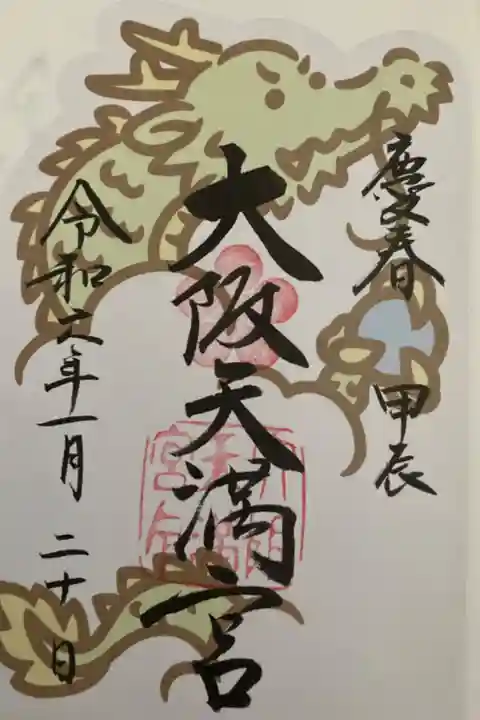 慶春 甲辰
大阪天満宮
令和六年一月二十日